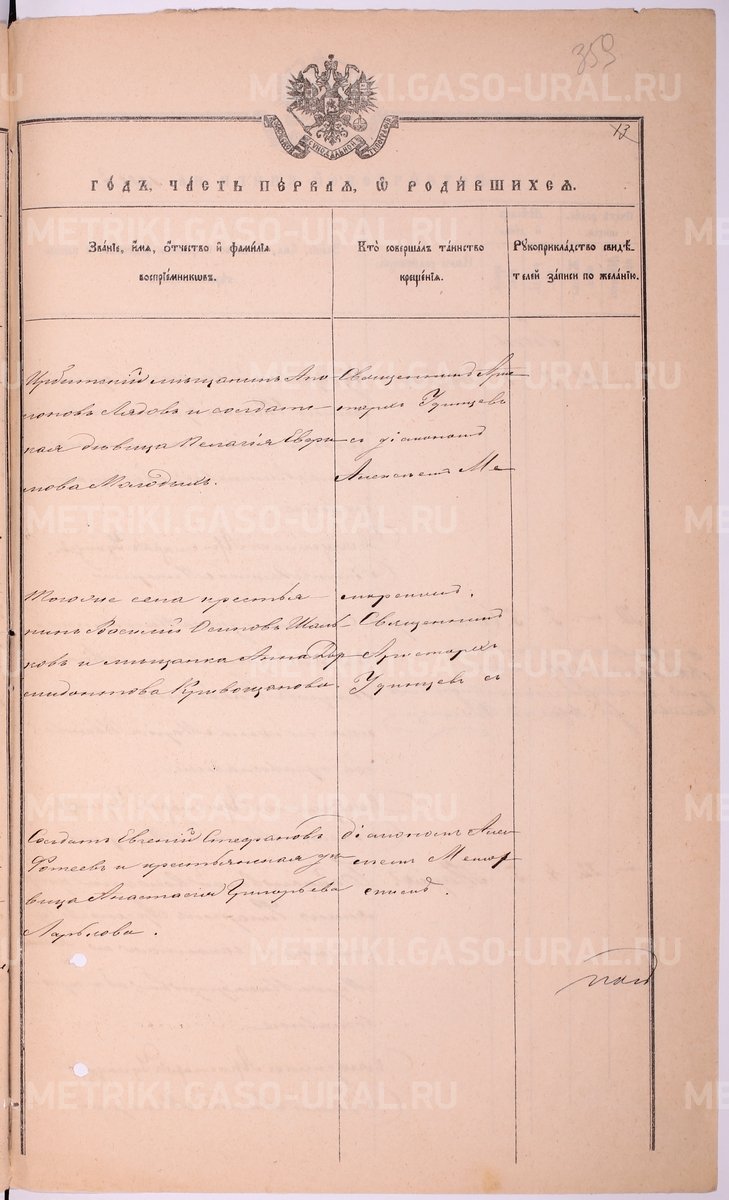 359
13
МОСКОВСКОЙ СѴНОДАЛЬНОЙ ТѴПОГРАФІИ
ГОДЪ, ЧАСТЬ ПЕРВАЯ, Ѡ РОДИВШИХСЯ.
Званіе, имя, отчество и фамилія воспріемниковъ.
Кто совершалъ таинство крещенія.
Рукоприкладство свидѣтелей записи по желанію.
Ирбитскій мѣщанинъ Апо-
лоновъ Лядовъ и солдатс-
кая дѣвица Пелагія Евфи-
мова Молодыхъ.
Священникъ Арис-
тархъ Удинцевъ
съ діакономъ
Алексѣемъ Ме-
Тогоже села крестья-
нинъ Василій Осиповъ
ковъ и мѣщанка Анна
Кривощапова.
Священникъ
Аристархъ
Удинцевъ съ
Солдатъ Евгеній Стефановъ
Фотеевъ и крестьянская дѣ-
вица Анастасія Григорьева
діакономъ Алек-
сѣемъ
METRIKI.GASO-URAL.RU